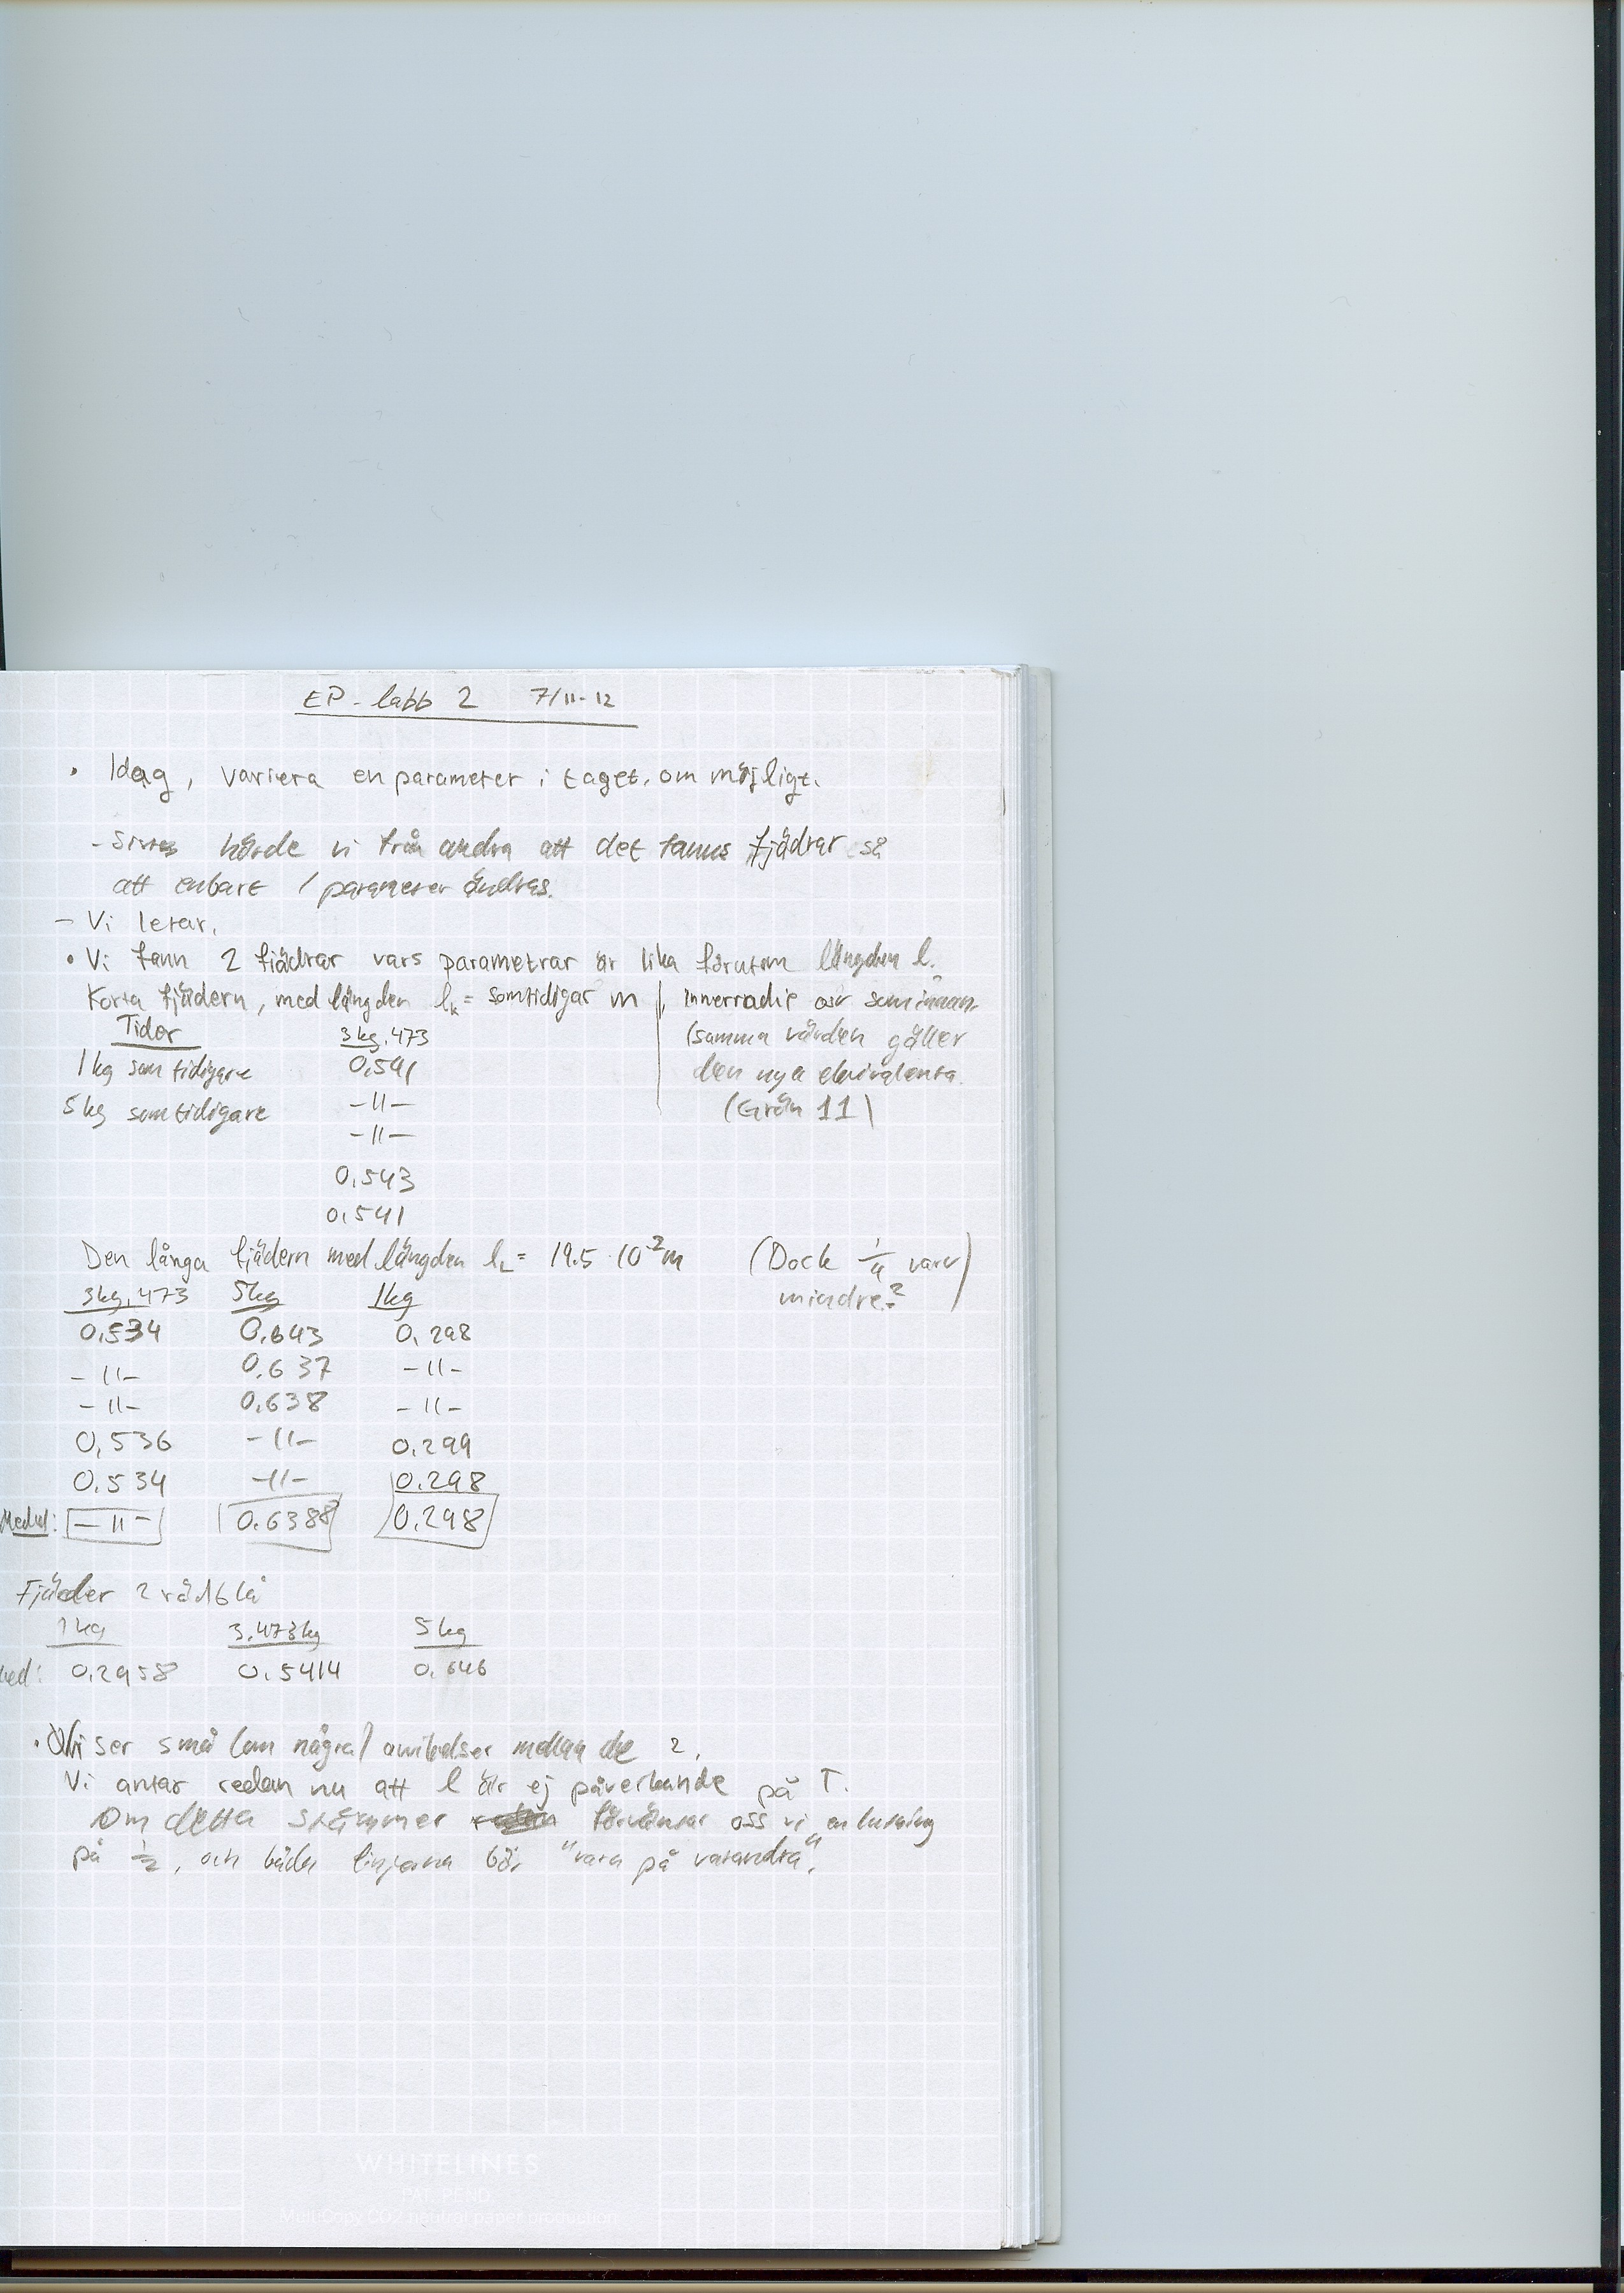 EP-labb 2 7/11-12
• Idag, variera en parameter i taget, om möjligt.
- Sistes hörde vi från andra att det fanns fjädrar så
att enbart 1 parameter ändras.
- Vi letar.
• Vi fann 2 fjädrar vars parametrar är lika förutom längden l.
Korta fjädern, med längden lk = som tidigar m, innerradie är som innan.
Tider 3kg,473 (samma värden gäller
1kg som tidigare 0,541 den nya ekvivalenta.
5kg som tidigare -11- (Grön 11)
-11-
0,543
0,541
Den långa fjädern med längden lL = 19.5·10⁻²m (Dock 1/4 varv
3kg,473 5kg 1kg mindre?)
0,534 0,643 0,298
-11- 0.637 -11-
-11- 0,638 -11-
0,536 -11- 0.299
0.534 -11- 0.298
Medel: -11- 0.6388 0.298
Fjäder 2 rödblå
1kg 3.473kg 5kg
ed: 0,2958 0.5414 0.646
• Vi ser små (om några) avvikelser mellan de 2.
Vi antar redan nu att l är ej påverkande på T.
Om detta stämmer förväntar oss vi en lutning
på 1/2, och båda linjerna bör "vara på varandra".
WHITELINES
PAT. PEND.
MultiCopy CO2 neutral paper production